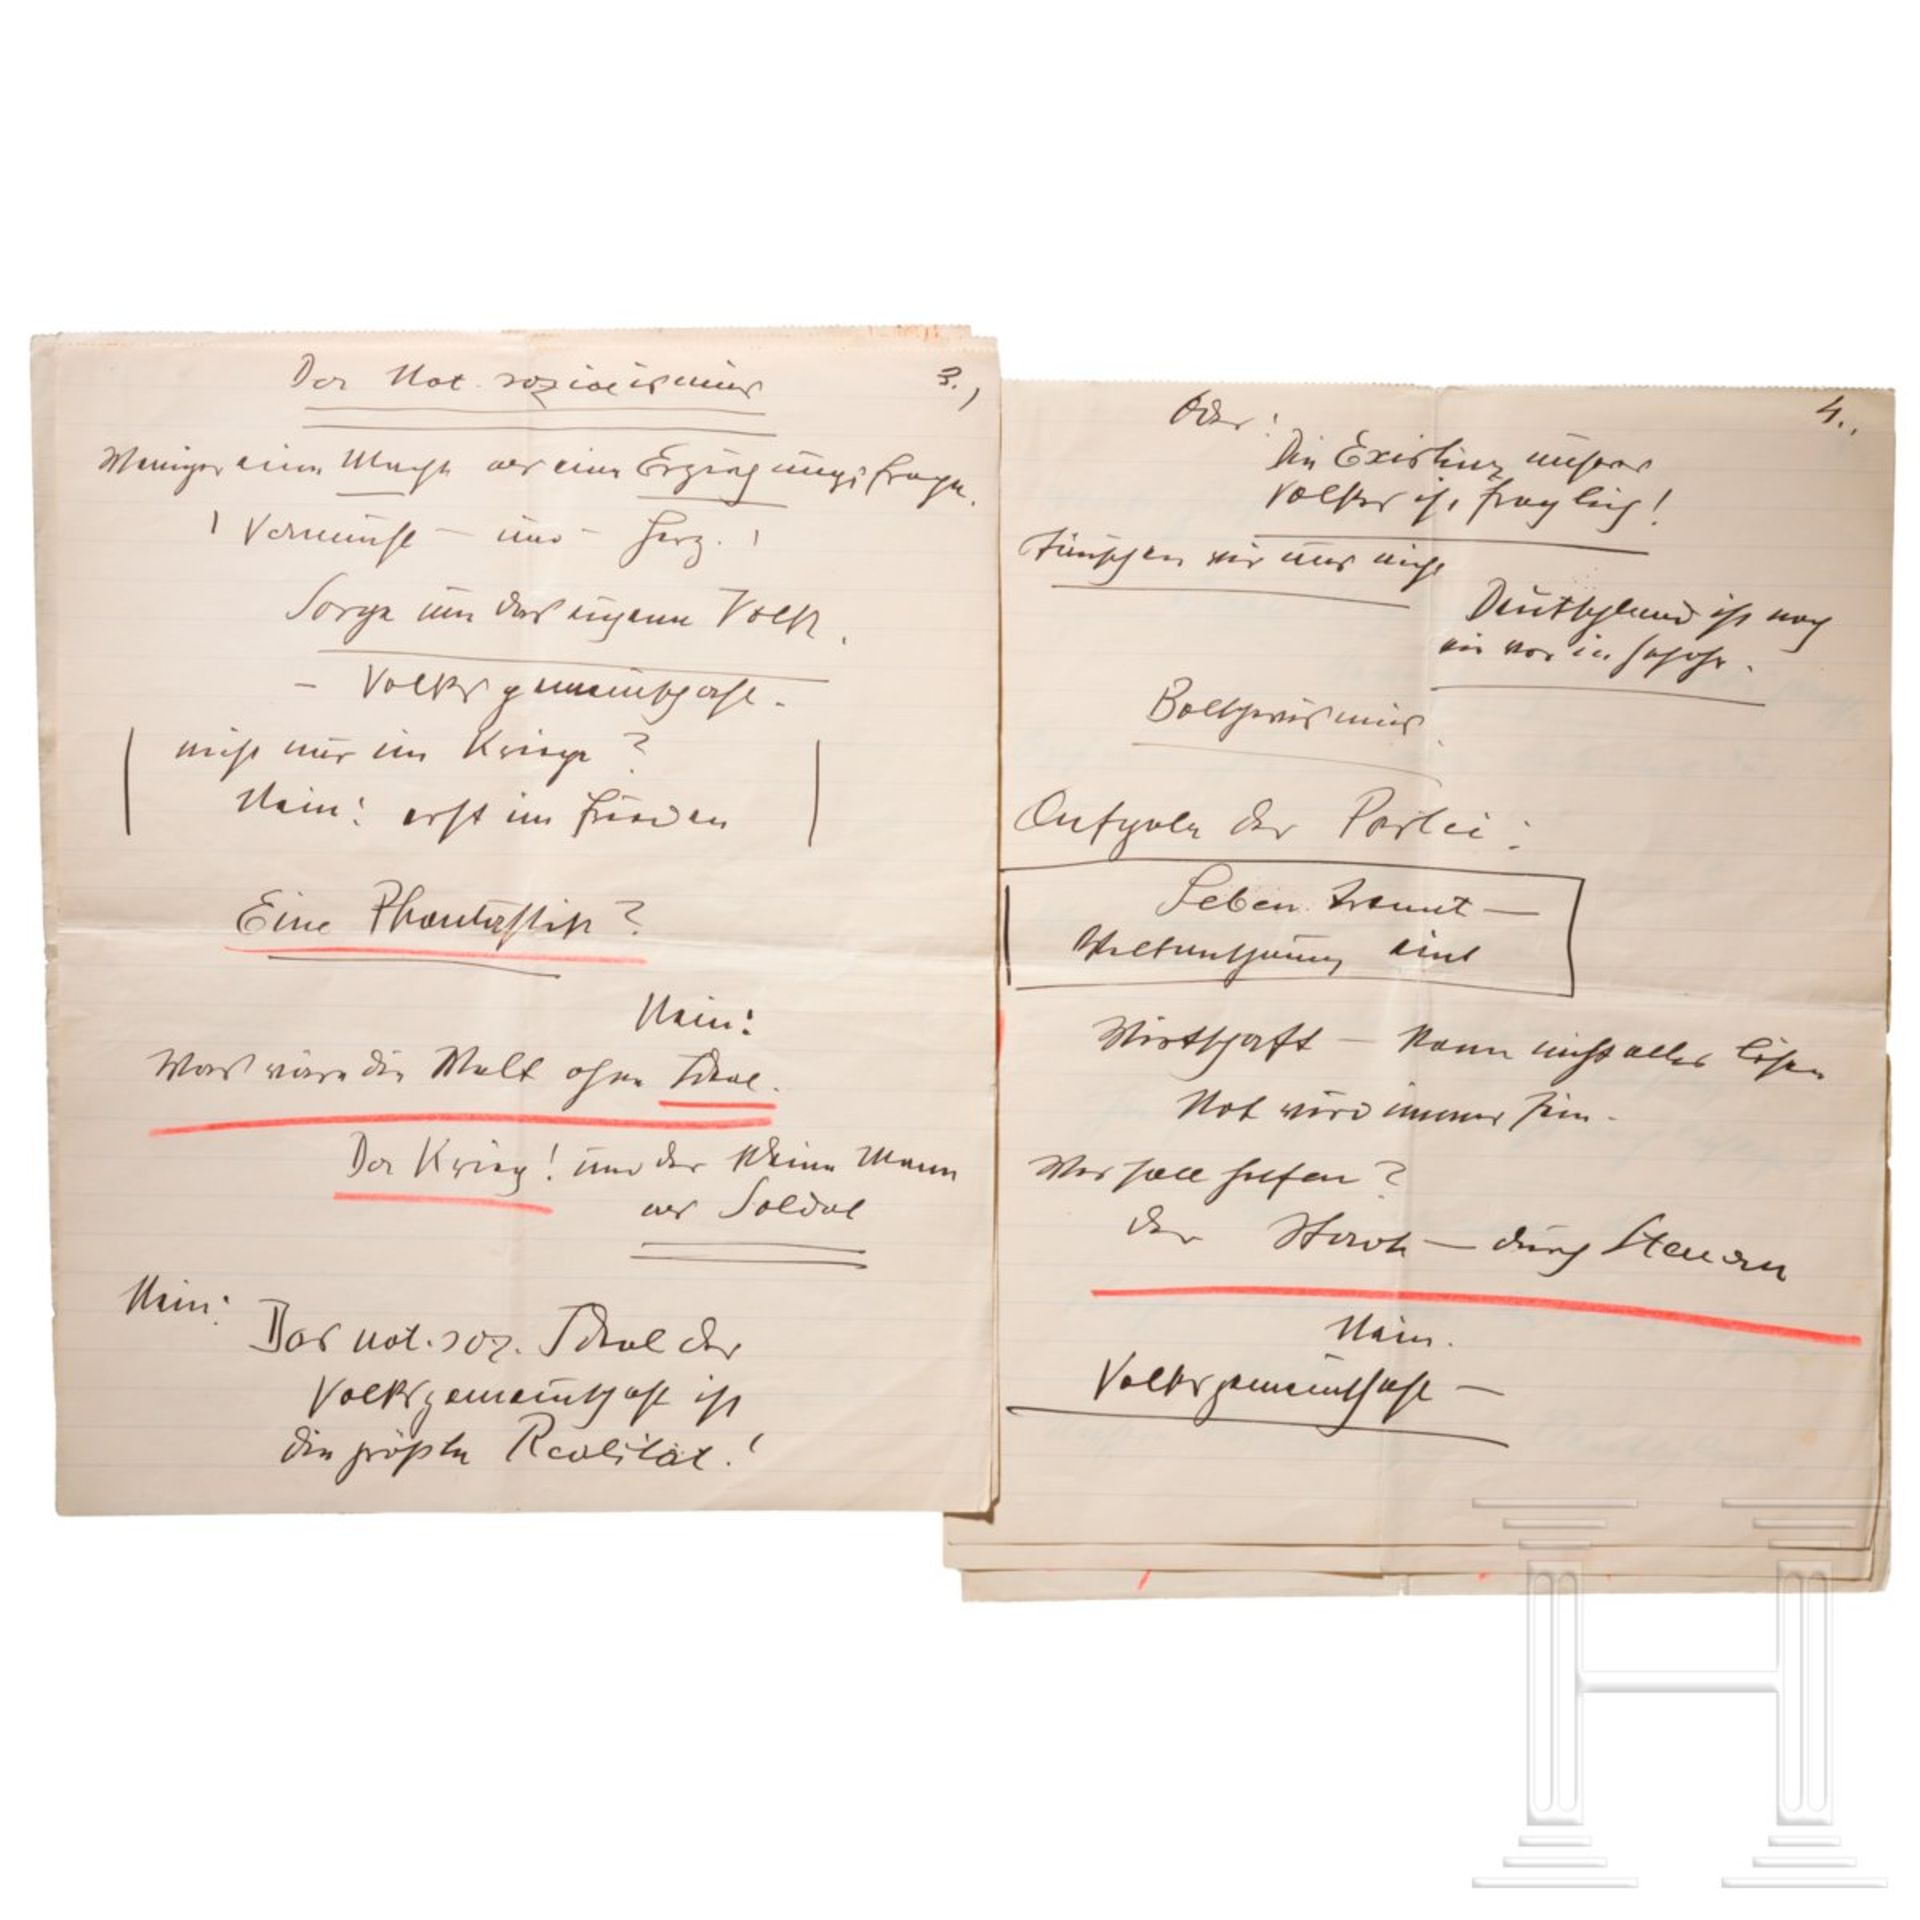 Der Nat. sozialismus
3.)
Weniger eine Macht als eine Erziehungsfrage.
! Vernunft – und – Herz. !
Sorge um das eigene Volk.
– Volksgemeinschaft.
nicht nur im Kriege?
Nein: erst im Frieden
Eine Phantastik?
Nein:
Was wäre die Welt ohne Ideal.
Der Krieg! und der kleine Mann
als Soldat
Nein:
Das nat. soz. Ideal der
Volksgemeinschaft ist
die größte Realität!
4.,
Oder:
Die Existenz unseres
Volkes ist fraglich!
täuschen wir uns nicht
Deutschland ist nach
wie vor in Gefahr.
Bolschewismus.
Aufgabe der Partei:
Leben trennt –
Weltanschauung eint
Wirtschaft – kann nicht alles lösen
Not wird immer sein.
Wer soll helfen?
der Staat – durch Steuern
Nein.
Volksgemeinschaft –
H